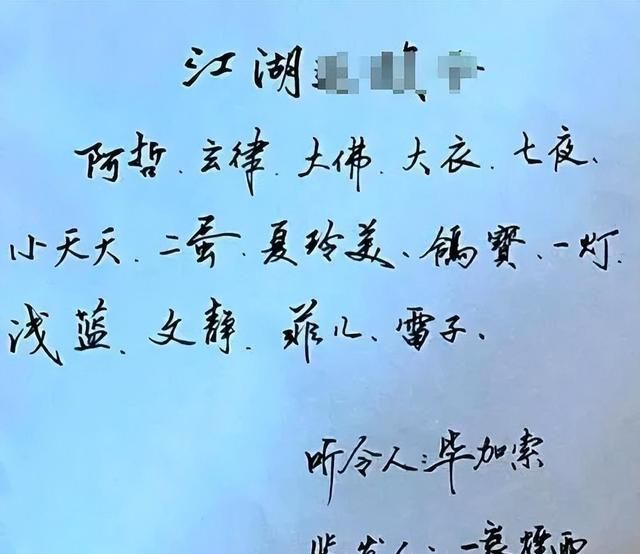 江湖
阿哲、玄律、大佛、大衣、七夜、
小天天、二蛋、夏玲美、鸽寳、一灯、
浅蓝、文静、菲儿、雷子、
听令人:毕加索
发人:一蓑烟雨